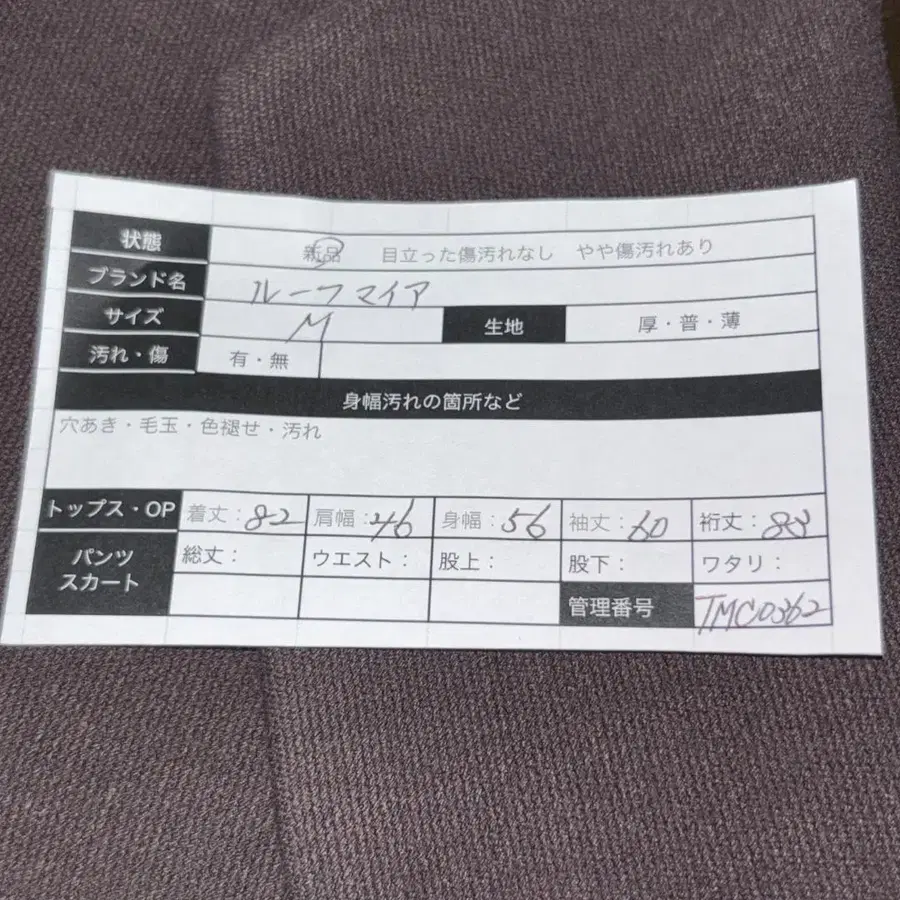 状態 新品 目立った傷汚れなし やや傷汚れあり
ブランド名 ルーフマイア
サイズ M 生地 厚・普・薄
汚れ・傷 有・無
身幅汚れの箇所など
穴あき・毛玉・色褪せ・汚れ
トップス・OP 着丈：82 肩幅：46 身幅：56 袖丈：60 裄丈：83
パンツ スカート 総丈： ウエスト： 股上： 股下： ワタリ：
管理番号 TMC0362